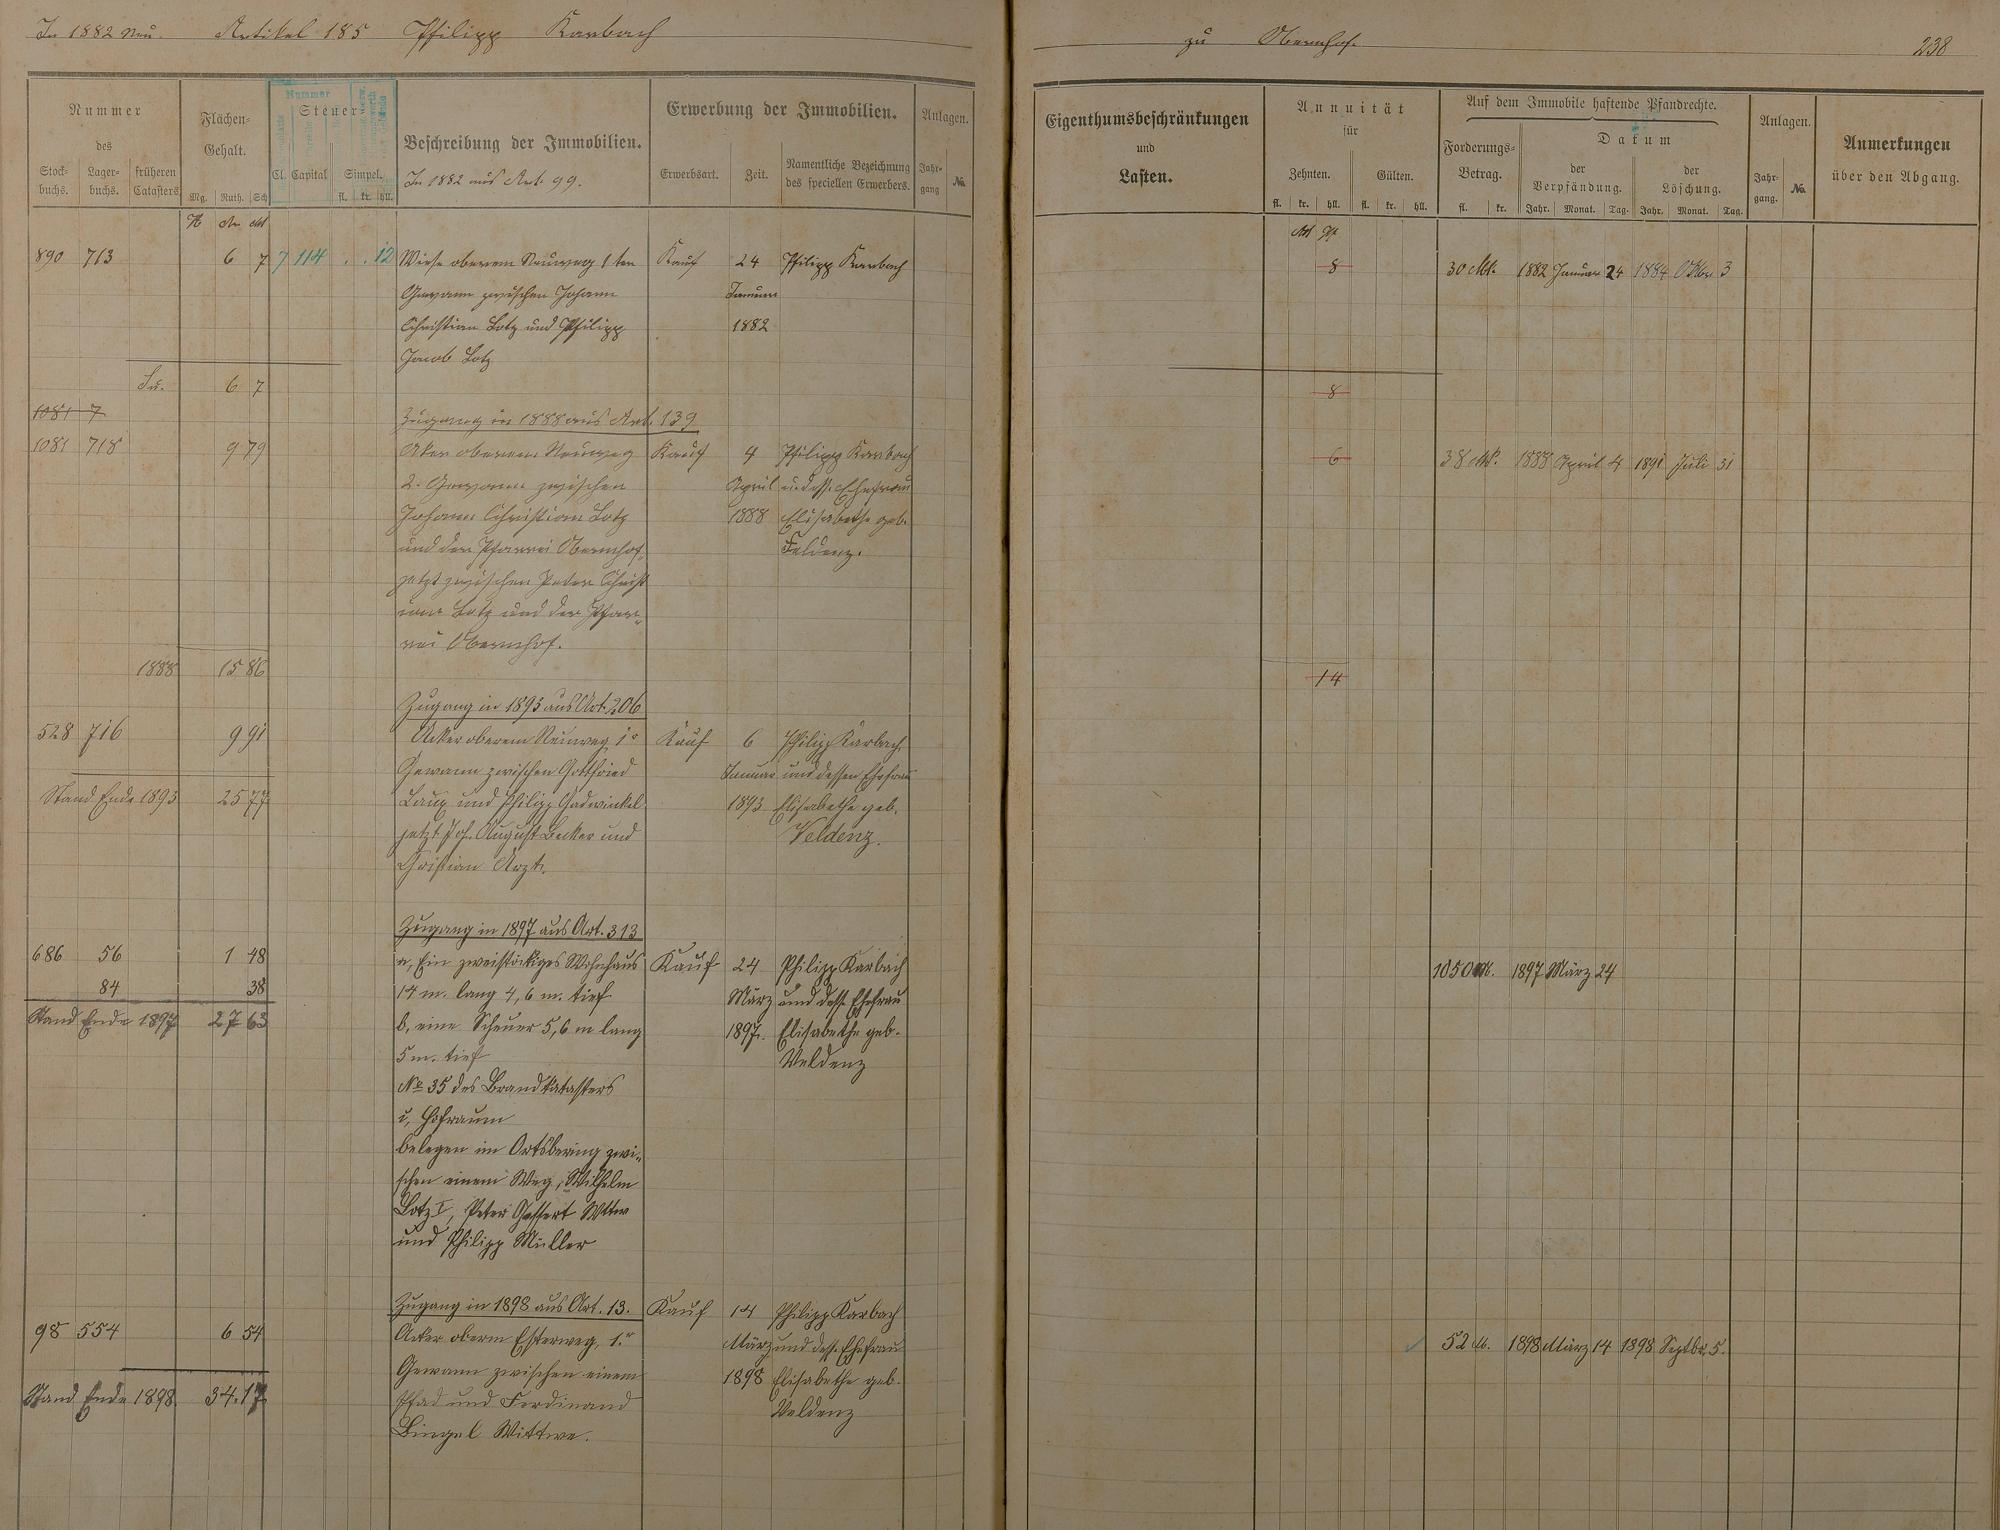 In 1882 neu. Artikel 185 Philipp Karbach
zu Obernhof. 238
Nummer
des
Stock-
buchs.
Lager-
buchs.
früheren
Catasters
Flächen-
Gehalt.
Mg. Ruth. Sch
Nummer
Steuer-
Cl. Capital Simpel.
fl. kr. hll.
Beschreibung der Immobilien.
In 1882 aus Art. 99.
Erwerbung der Immobilien.
Erwerbsart. Zeit.
Namentliche Bezeichnung
des speciellen Erwerbers.
Anlagen.
Jahr-
gang
No.
Eigenthumsbeschränkungen
und
Lasten.
Annuität
für
Zehnten. Gülten.
fl. kr. hll. fl. kr. hll.
Auf dem Immobile haftende Pfandrechte.
Forderungs-
Betrag.
fl. kr.
Datum
der
Verpfändung.
Jahr. Monat. Tag.
der
Löschung.
Jahr. Monat. Tag.
Anlagen.
Jahr-
gang.
No.
Anmerkungen
über den Abgang.
890 713 6 7 7 114 . . 12 Wiese oberem Neuweg 1ten Kauf 24 Philipp Karbach 8 30 Mk. 1882 Januar 24 1884 Oktbr 3
Gewann zwischen Johann Januar
Christian Lotz und Philipp 1882
Jacob Lotz
Su. 6 7 8
1081 7 Zugang in 1888 aus Art. 139
1081 718 9 79 Aker oberem Neuweg Kauf 4 Philipp Karbach 6 38 Mk. 1888 April 4 1891 Juli 31
2. Gewann zwischen April u. dess. Ehefrau
Johann Christian Lotz 1888 Elisabethe geb.
und der Pfarrei Obernhof, Feldenz.
jetzt zwischen Peter Christ
ian Lotz und der Pfar-
rei Obernhof.
1888 15 86 14
Zugang in 1893 aus Art. 206
528 716 9 91 Acker oberem Neuweg 1r Kauf 6 Philipp Karbach
Gewann zwischen Gottfried Januar und dessen Ehefrau
Stand Ende 1893 25 77 Laux und Philipp Gadewinkel 1893 Elisabethe geb.
jetzt Joh. August Becker und Veldenz.
Christian Arzt.
Zugang in 1897 aus Art. 313
686 56 1 48 a, Ein zweistöckiges Wohnhaus Kauf 24 Philipp Karbach 1050 M. 1897 März 24
84 38 14 m. lang 4,6 m. tief März und dess. Ehefrau
Stand Ende 1897 27 63 b, eine Scheuer 5,6 m lang 1897. Elisabethe geb.
5 m. tief Veldenz
No 35 des Brandkatasters
u, Hofraum
belegen im Ortsbering zwi-
schen einem Weg, Wilhelm
Lotz I, Peter Gassert Wttw
und Philipp Müller
Zugang in 1898 aus Art. 13. Kauf 14 Philipp Karbach
98 554 6 54 Acker oberm Esterweg, 1.r März und dess. Ehefrau 52 M. 1898 März 14 1898 Septbr. 5.
Gewann zwischen einem 1898 Elisabethe geb.
Stand Ende 1898 34.17 Pfad und Ferdinand Veldenz
Bingel Wittwe.